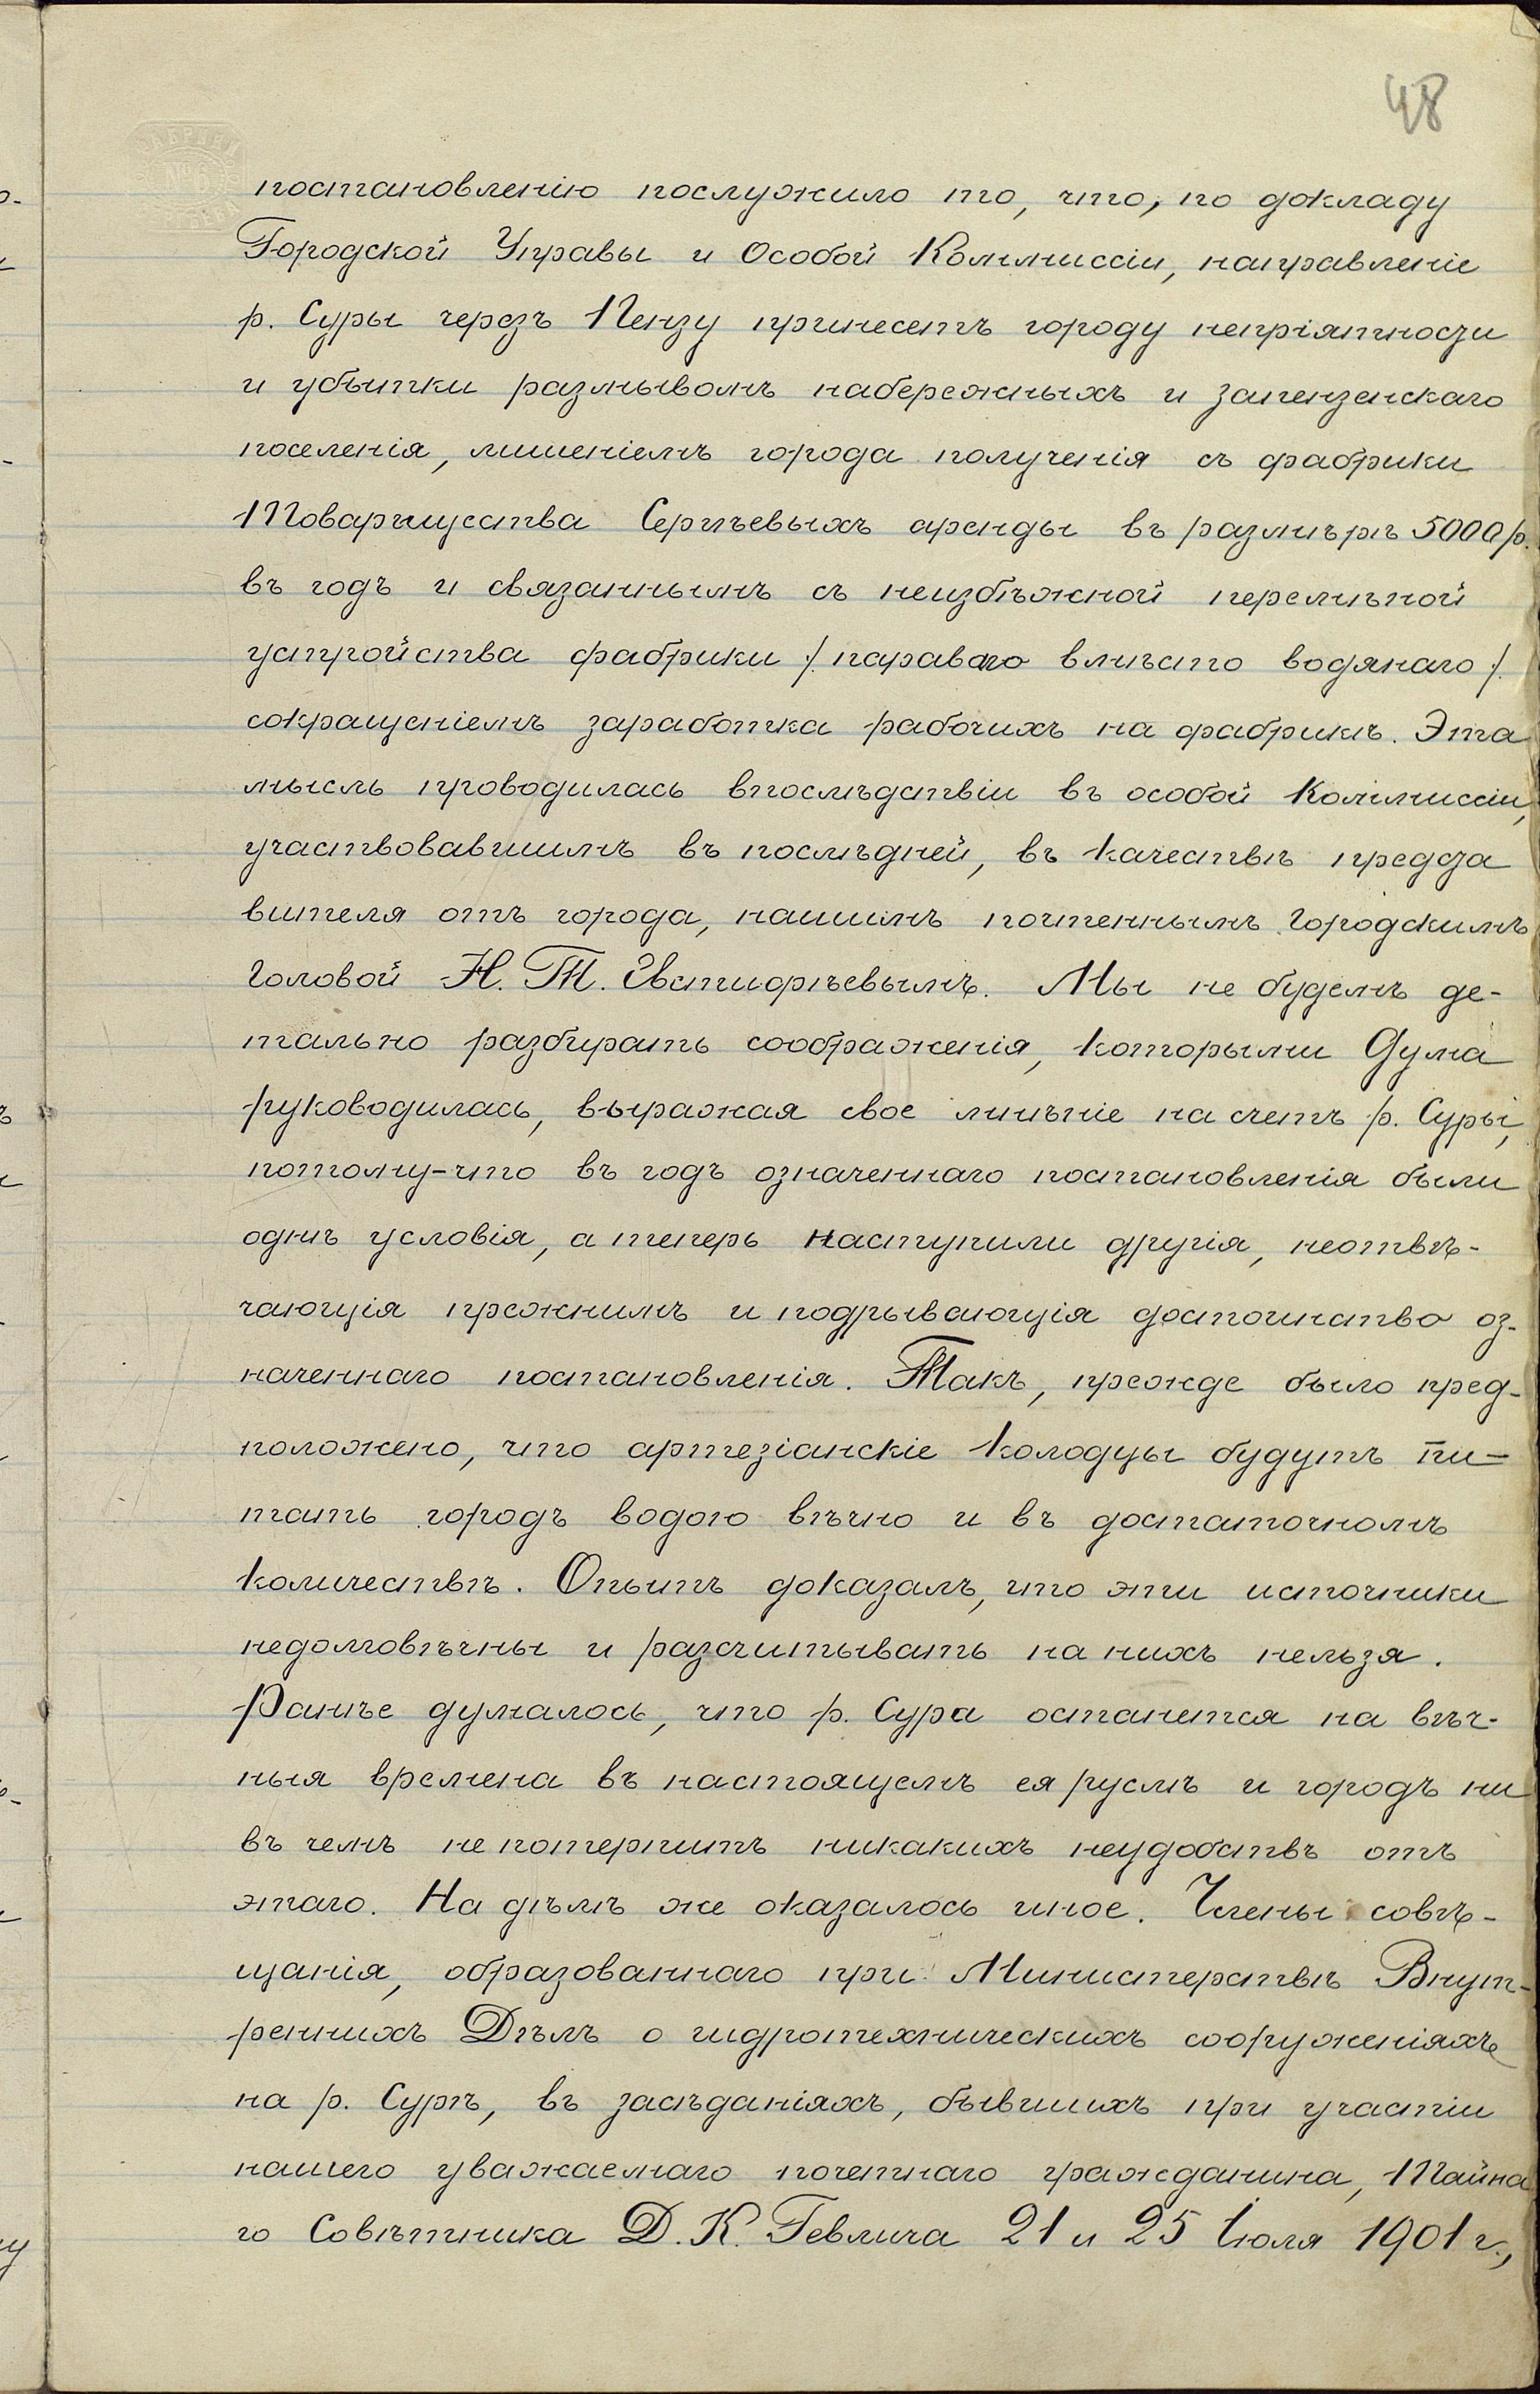 48
постановленію послужило то, что, по докладу
Городской Управы и Особой Коммиссіи, направленіе
р. Суры черезъ Пензу принесетъ городу непріятности
и убытки размывомъ набережныхъ и запензенскаго
поселенія, лишеніемъ города полученія съ фабрики
Товарищества Сергѣевыхъ аренды въ размѣрѣ 5000 р.
въ годъ и связаннымъ съ неизбѣжной перемѣной
устройства фабрики /. пароваго вмѣсто водянаго /.
сокращеніемъ заработка рабочихъ на фабрикѣ. Эта
мысль проводилась впослѣдствіи въ особой Коммиссіи,
участвовавшимъ въ послѣдней, въ качествѣ предста
вителя отъ города, нашимъ почтеннымъ Городскимъ
Головой Н. Т. Евстифѣевымъ. Мы не будемъ де-
тально разбирать соображенія, которыми Дума
руководилась, выражая свое мнѣніе на счетъ р. Суры,
потому-что въ годъ означеннаго постановленія были
однѣ условія, а теперь наступили другія, неотвѣ-
чающія прежнимъ и подрывающія достоинство оз-
наченнаго постановленія. Такъ, прежде было пред-
положено, что артезіанскіе колодцы будутъ пи-
тать городъ водою вѣчно и въ достаточномъ
количествѣ. Опытъ доказалъ, что эти источники
недолговѣчны и разсчитывать на нихъ нельзя.
Ранѣе думалось, что р. Сура останется на вѣч-
ныя времена въ настоящемъ ея руслѣ и городъ ни
въ чемъ не потерпитъ никакихъ неудобствъ отъ
этаго. На дѣлѣ же оказалось иное. Члены совѣ-
щанія, образованнаго при Министерствѣ Внут-
реннихъ Дѣлъ о гидротехническихъ сооруженіяхъ
на р. Сурѣ, въ засѣданіяхъ, бывшихъ при участіи
нашего уважаемаго почетнаго гражданина, Тайна
го Совѣтника Д. К. Гевлича 21 и 25 Іюля 1901 г.,